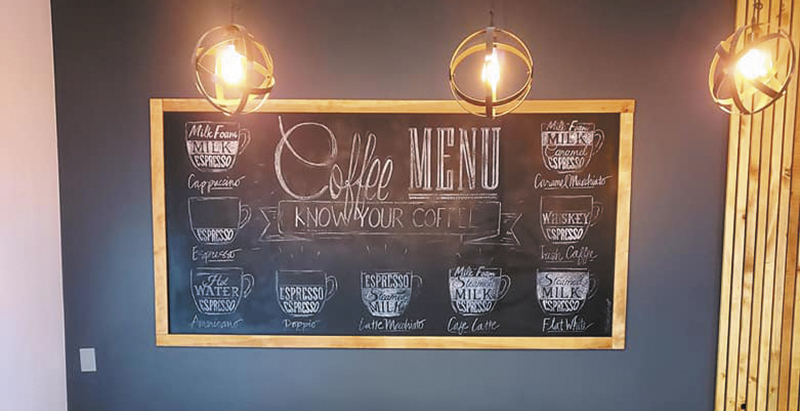 Coffee MENU
KNOW YOUR COFFEE
Milk Foam
MILK
ESPRESSO
Cappuccino
ESPRESSO
Espresso
Hot
WATER
ESPRESSO
Americano
ESPRESSO
Doppio
ESPRESSO
Steamed
MILK
Latte Macchiato
Milk Foam
Steamed
MILK
ESPRESSO
Cafe Latte
Steamed
MILK
ESPRESSO
Flat White
WHISKEY
ESPRESSO
Irish Caffee
Milk Foam
MILK
Caramel
ESPRESSO
Caramel Macchiato